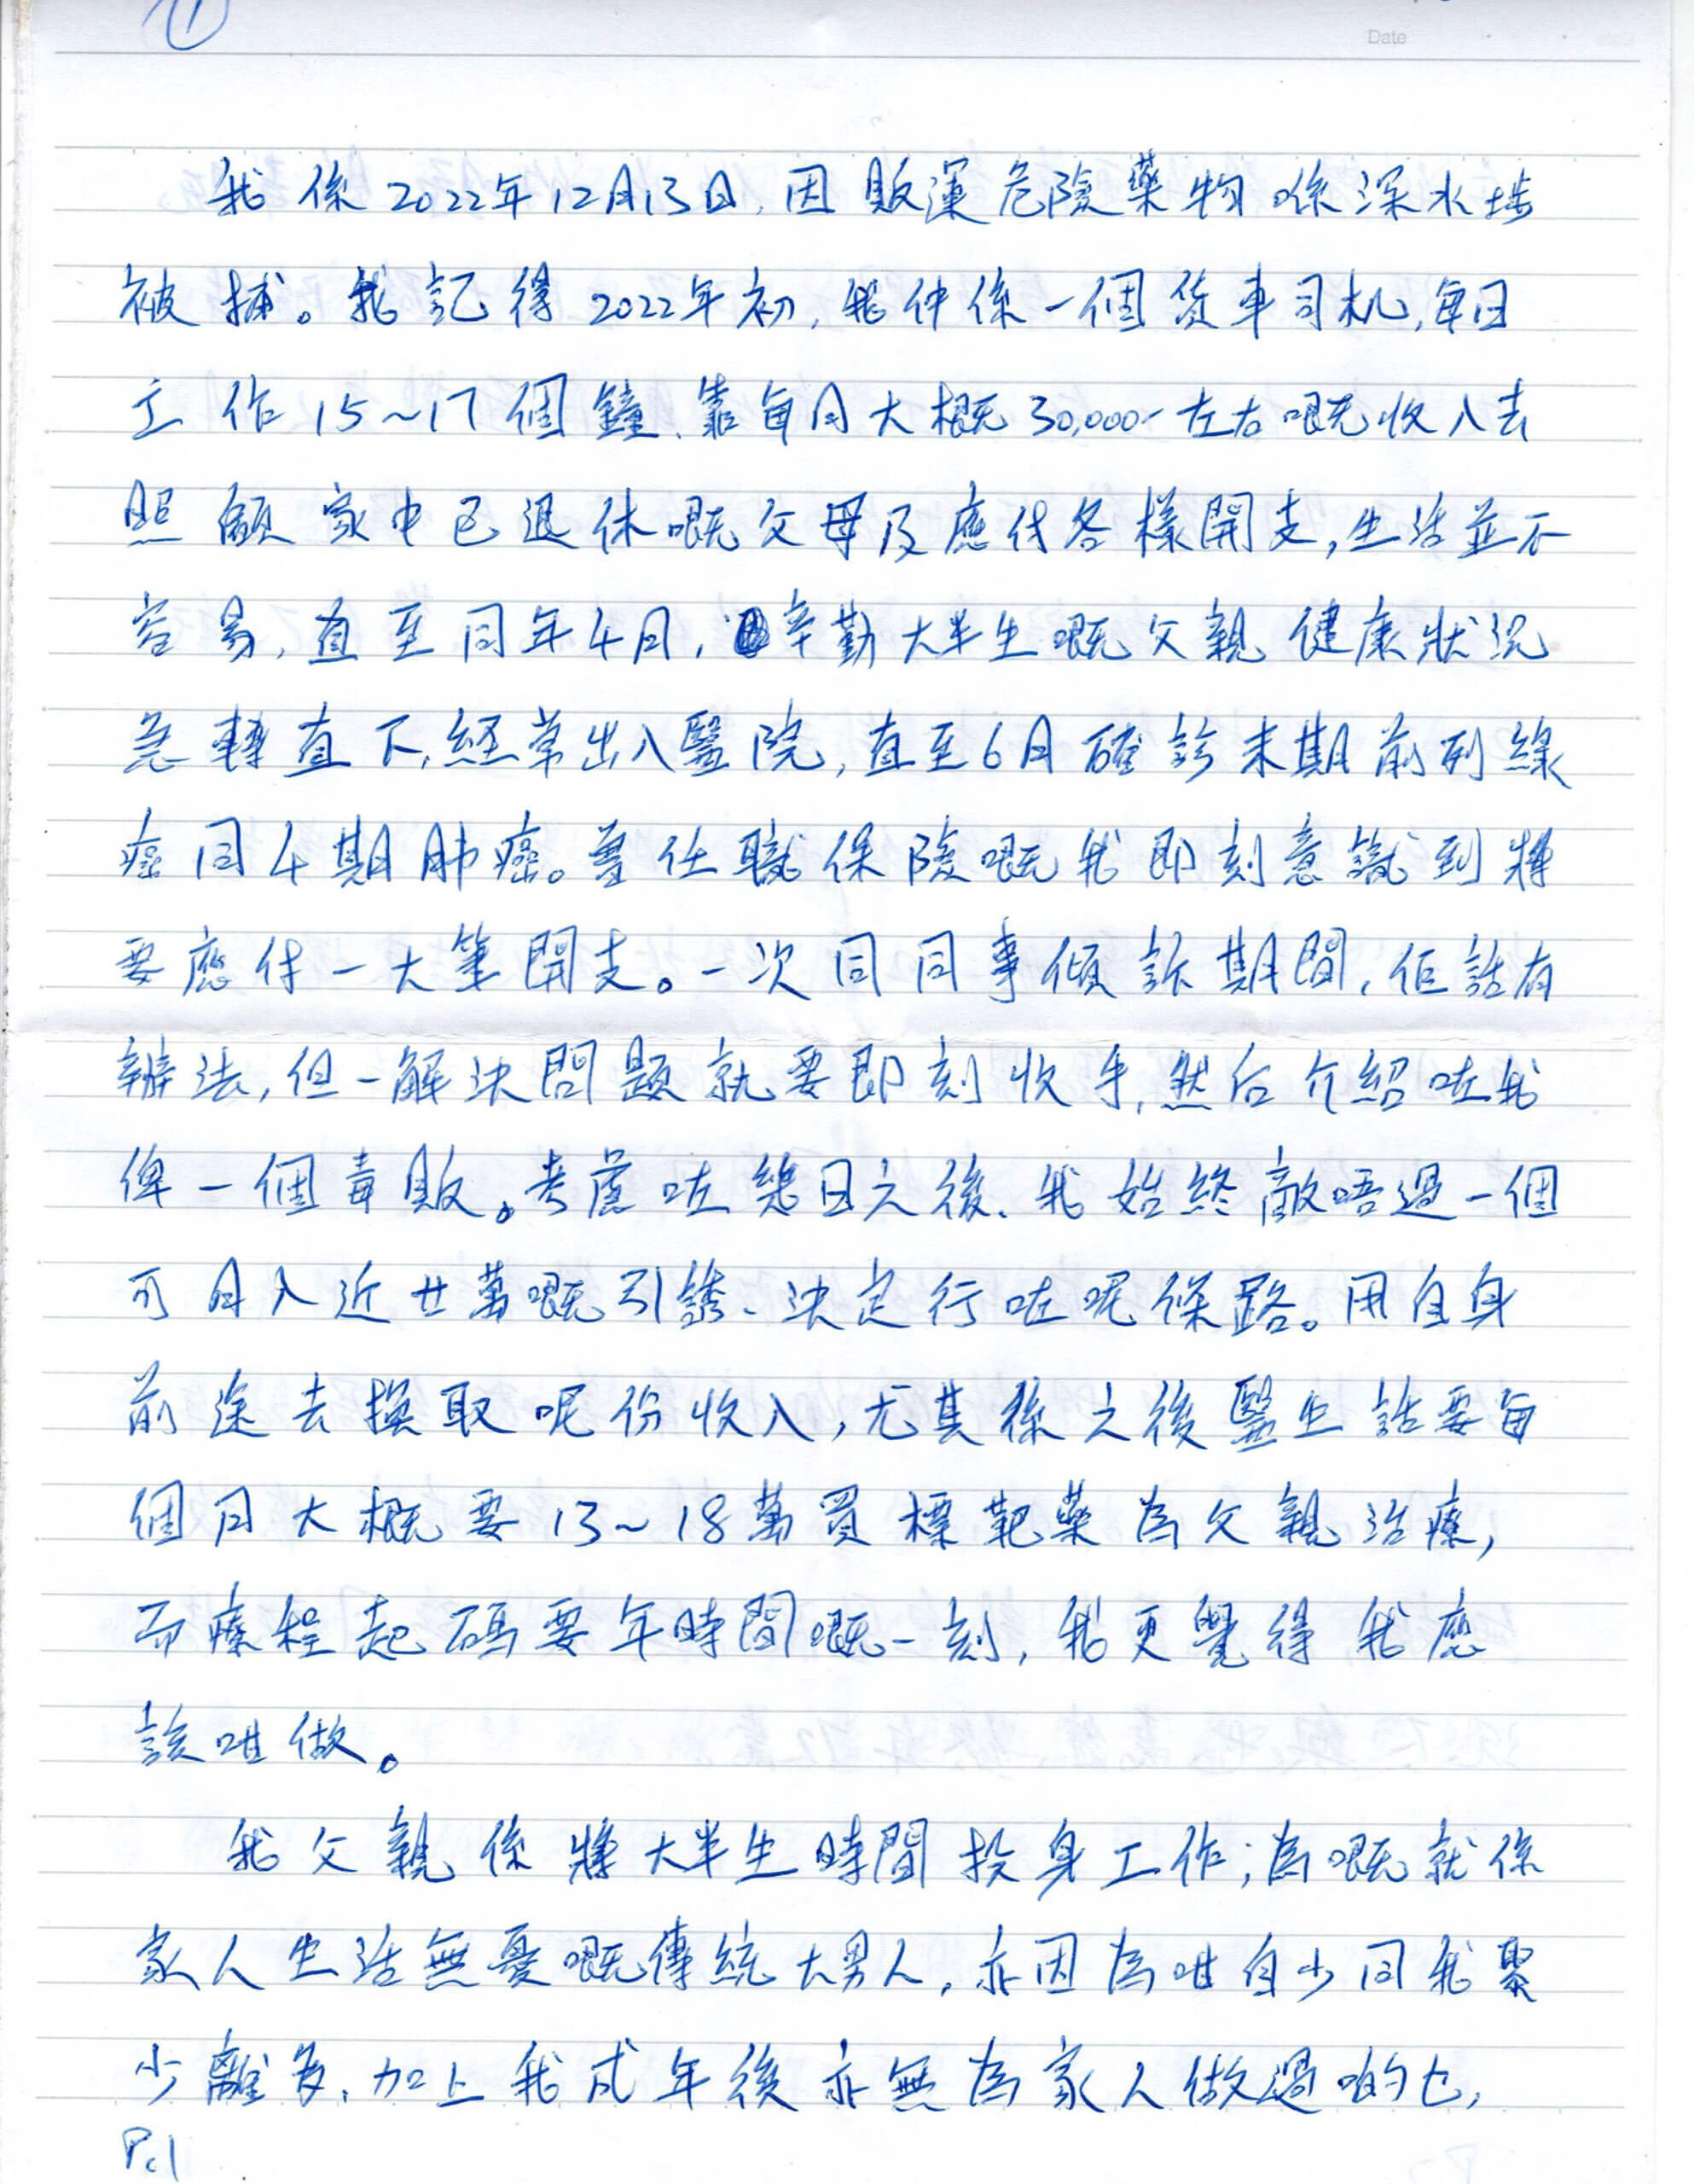 ①
Date
我係2022年12月13日,因販運危險藥物喺深水埗
被捕。我記得2022年初,我仲係一個貨車司机,每日
工作15~17個鐘、靠每月大概30,000-左右嘅收入去
照顧家中已退休嘅父母及應付各樣開支,生活並不
容易,直至同年4月,辛勤大半生嘅父親健康狀況
急轉直下,經常出入醫院,直至6月確診末期前列線
癌同4期肺癌。曾任職保險嘅我即刻意識到將
要應付一大筆開支。一次同同事傾訴期間,佢話有
辦法,但一解決問題就要即刻收手,然后介紹咗我
俾一個毒販。考慮咗幾日之後、我始終敵唔過一個
可月入近廿萬嘅引誘、決定行咗呢條路。用自身
前途去換取呢份收入,尤其係之後醫生話要每
個月大概要13~18萬買標靶藥為父親治療,
而療程起碼要年時間嘅一刻,我更覺得我應
該咁做。
我父親係將大半生時間投身工作;為嘅就係
家人生活無憂嘅傳統大男人,亦因為咁自少同我聚
少離多、加上我成年後亦無為家人做過啲乜,
P.1